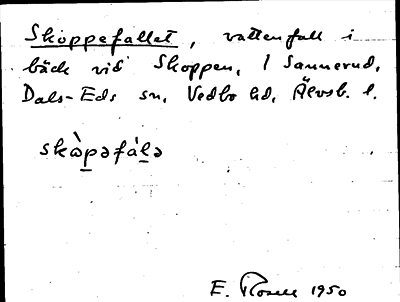 Skoppefallet, vattenfall i
bäck vid Skoppen, 1 Sannerud,
Dals-Eds sn, Vedbo hd, Älvsb. l.
skɷ̀pəfálə
E. Rosell 1950